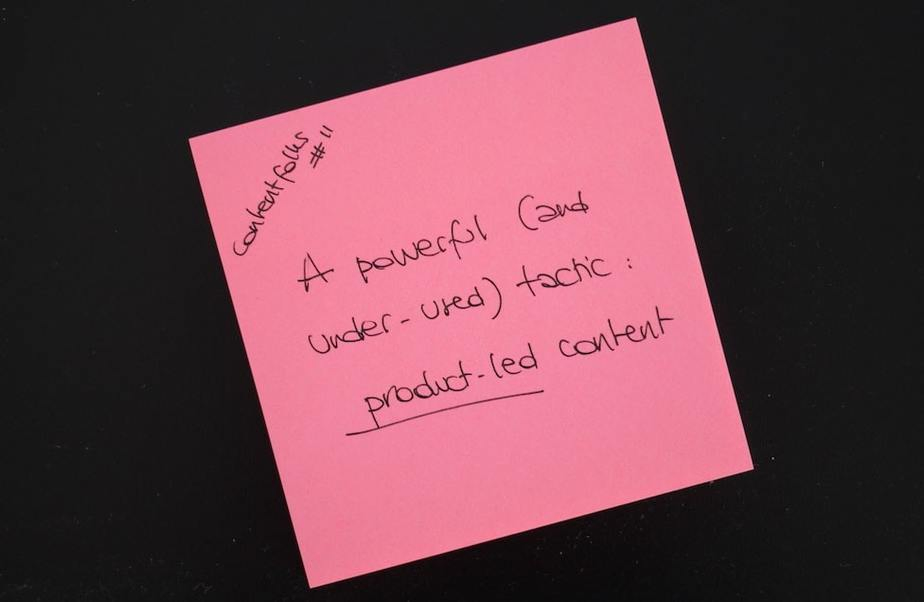 contentfolks
#11
A powerful (and
under-used) tactic:
product-led content